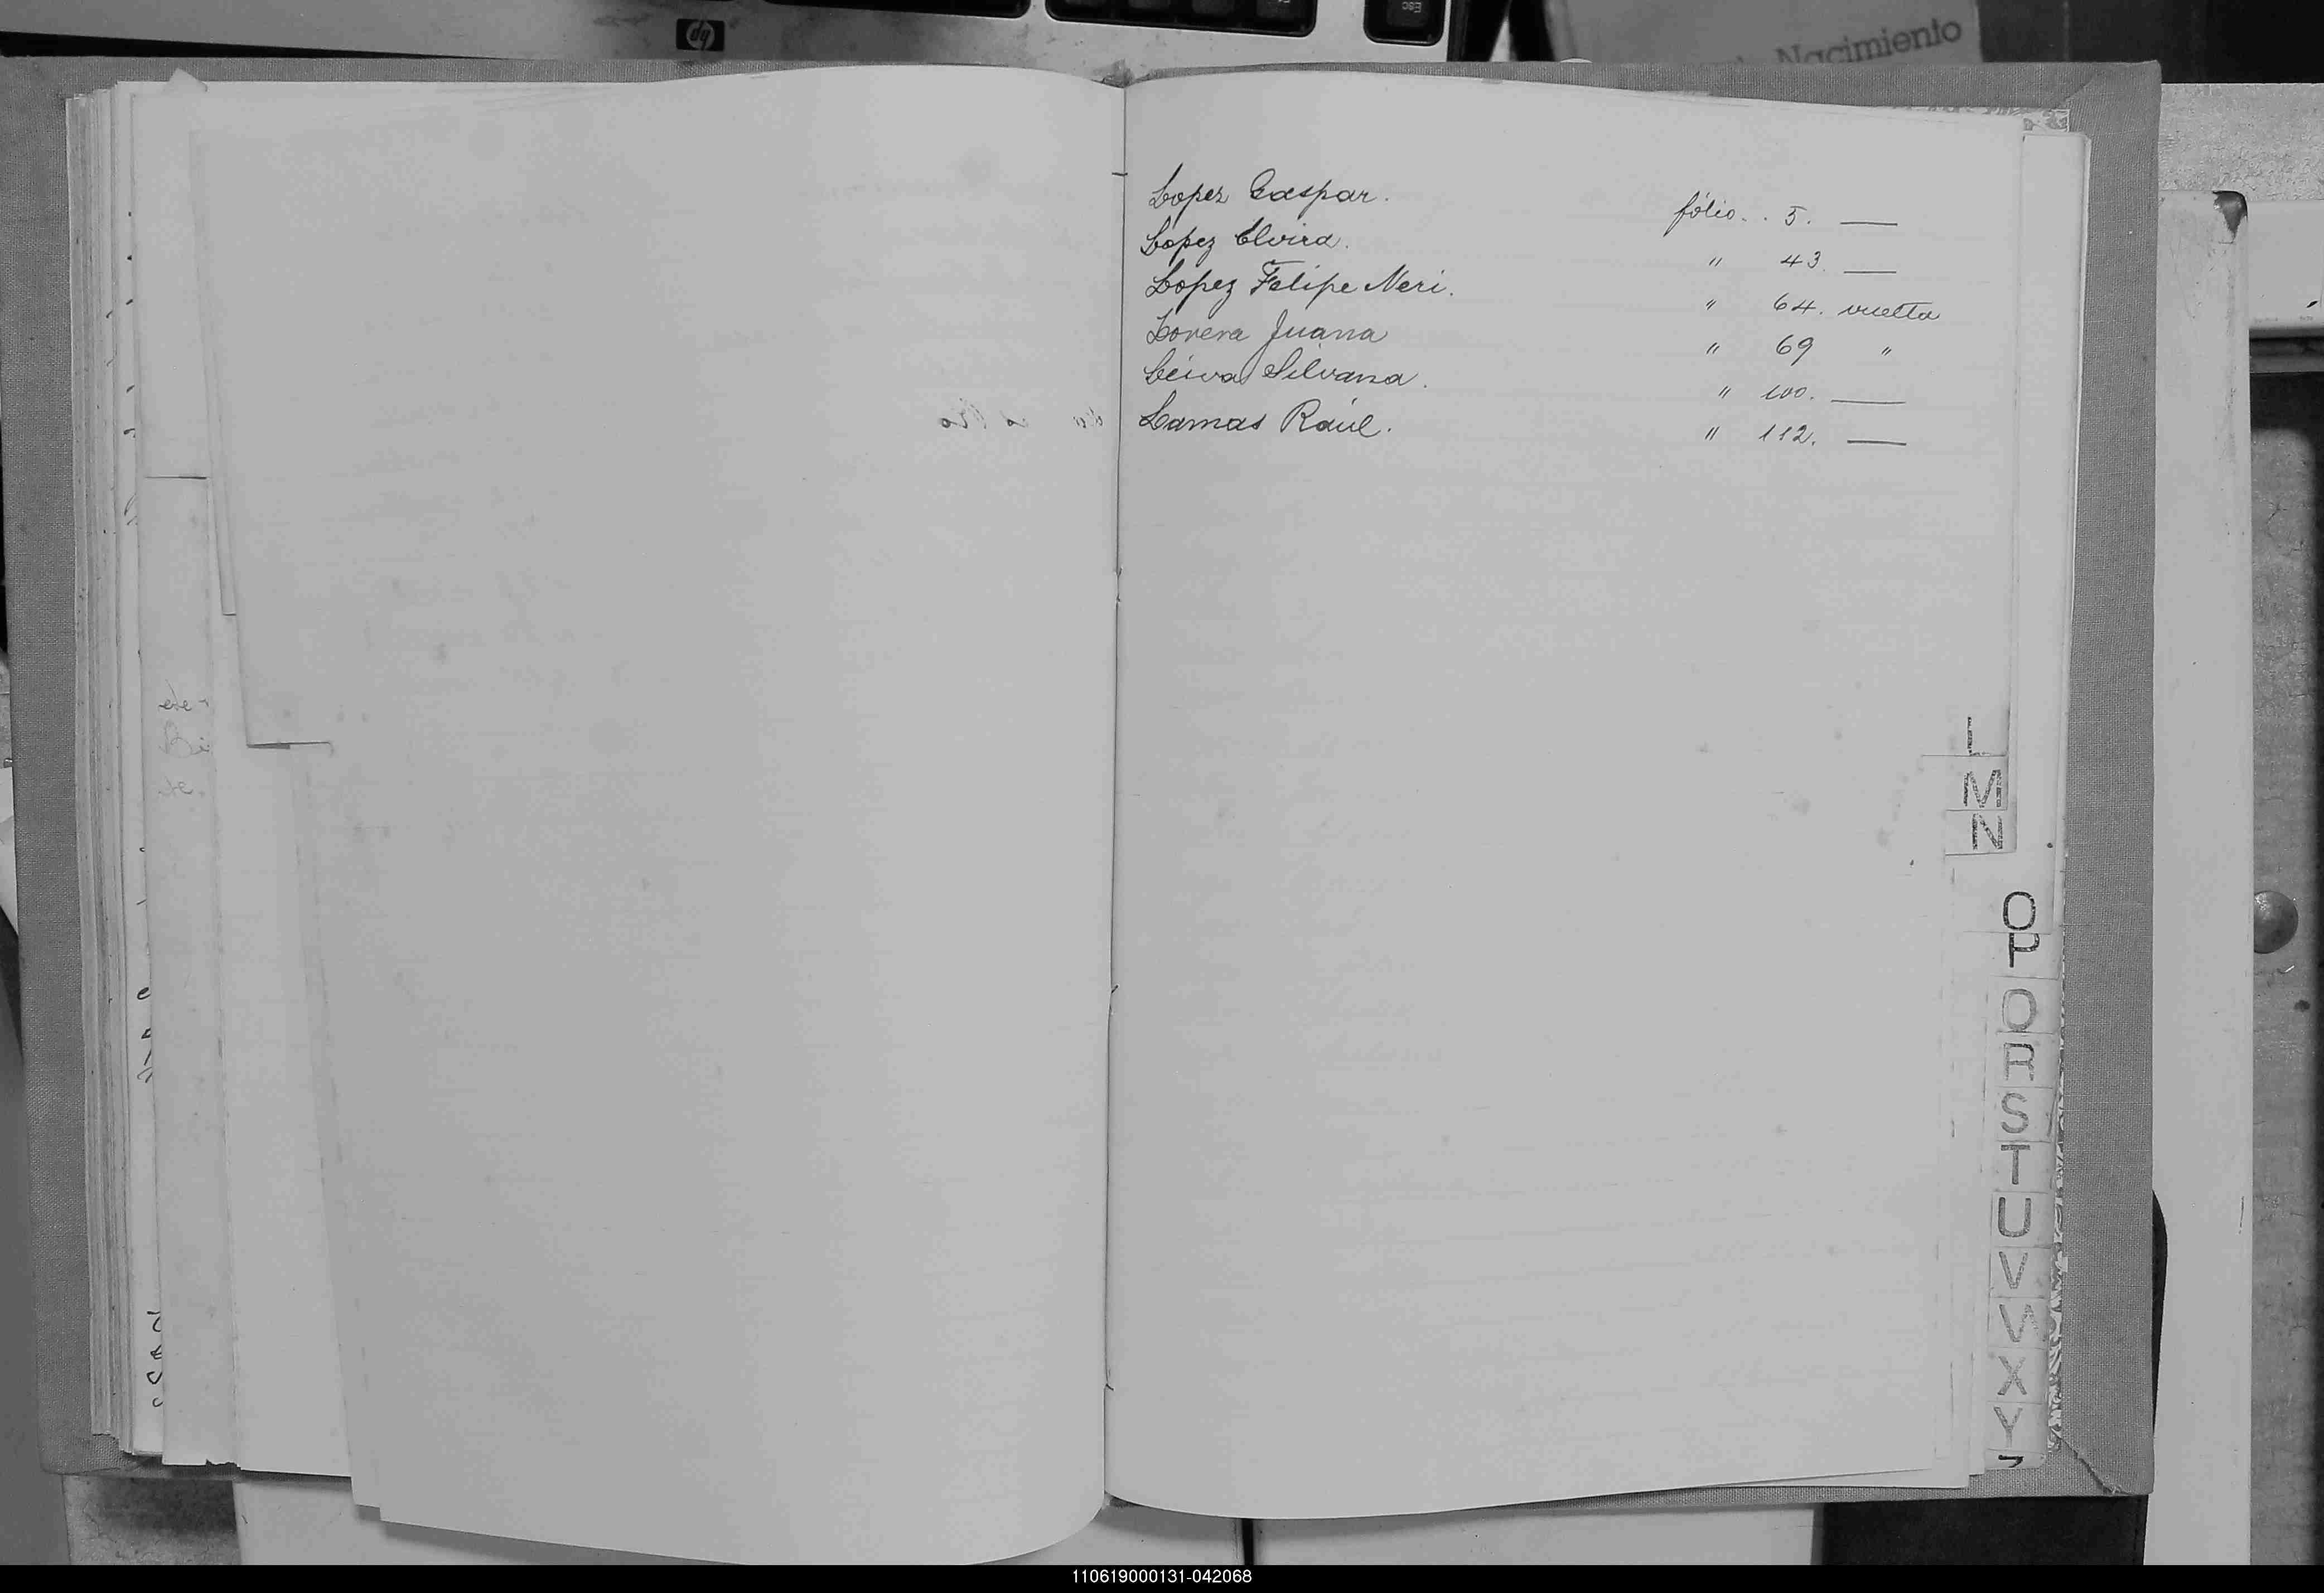 hp
Esc
Nacimiento
Lopez Gaspar. fólio. . 5. —
Lopez Elvira. " 43. —
Lopez Felipe Neri. " 64. vuelta
Lovera Juana " 69 "
Leiva Silvana. " 100. —
Lamas Raúl. " 112. —
L
M
N
O
P
Q
R
S
T
U
V
W
X
Y
110619000131-042068